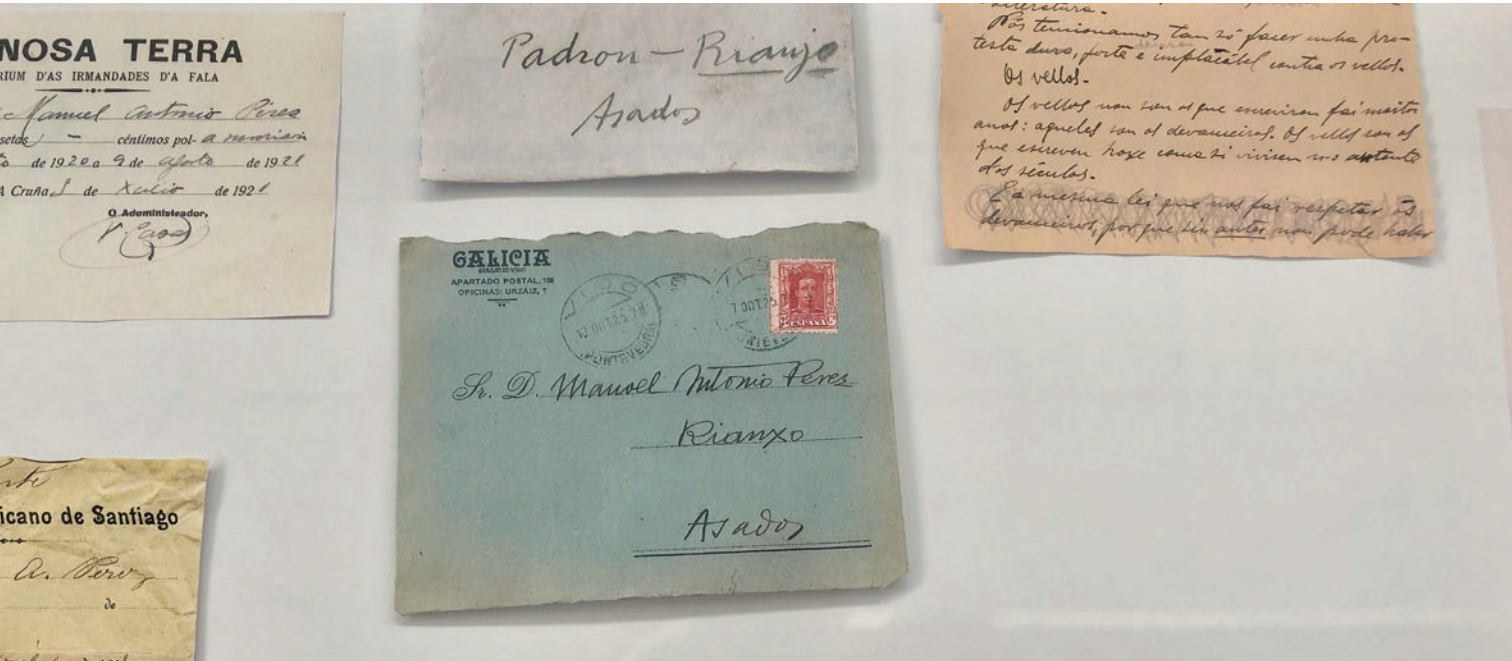 NOSA TERRA
RIUM D'AS IRMANDADES D'A FALA
Manuel Antonio Pérez
setas - céntimos pol-a
de 1920 a 9 de agosto de 1921
A Cruña de Xulio de 1921
O Adeministrador,
Padron - Rianjo
Asados
Nós tencionamos tan só facer unha pro-
testa dura, forte e implacabel contra os vellos.
Os vellos.
Os vellos non son os que escreviron fai moitos
anos: aqueles son os devanceiros. Os vellos son os
que escreven hoxe coma si vivisen no
dos séculos.
E a mesma lei que nos fai respetar os
devanceiros, por que sin antes non pode haber
GALICIA
DIARIO DE VIGO
APARTADO POSTAL, 106
OFICINAS: URZÁIZ, 7
VIGO
(PONTEVEDRA)
ESPAÑA
Sr. D. Manoel Antonio Perez
Rianxo
Asados
icano de Santiago
A. Perez
de